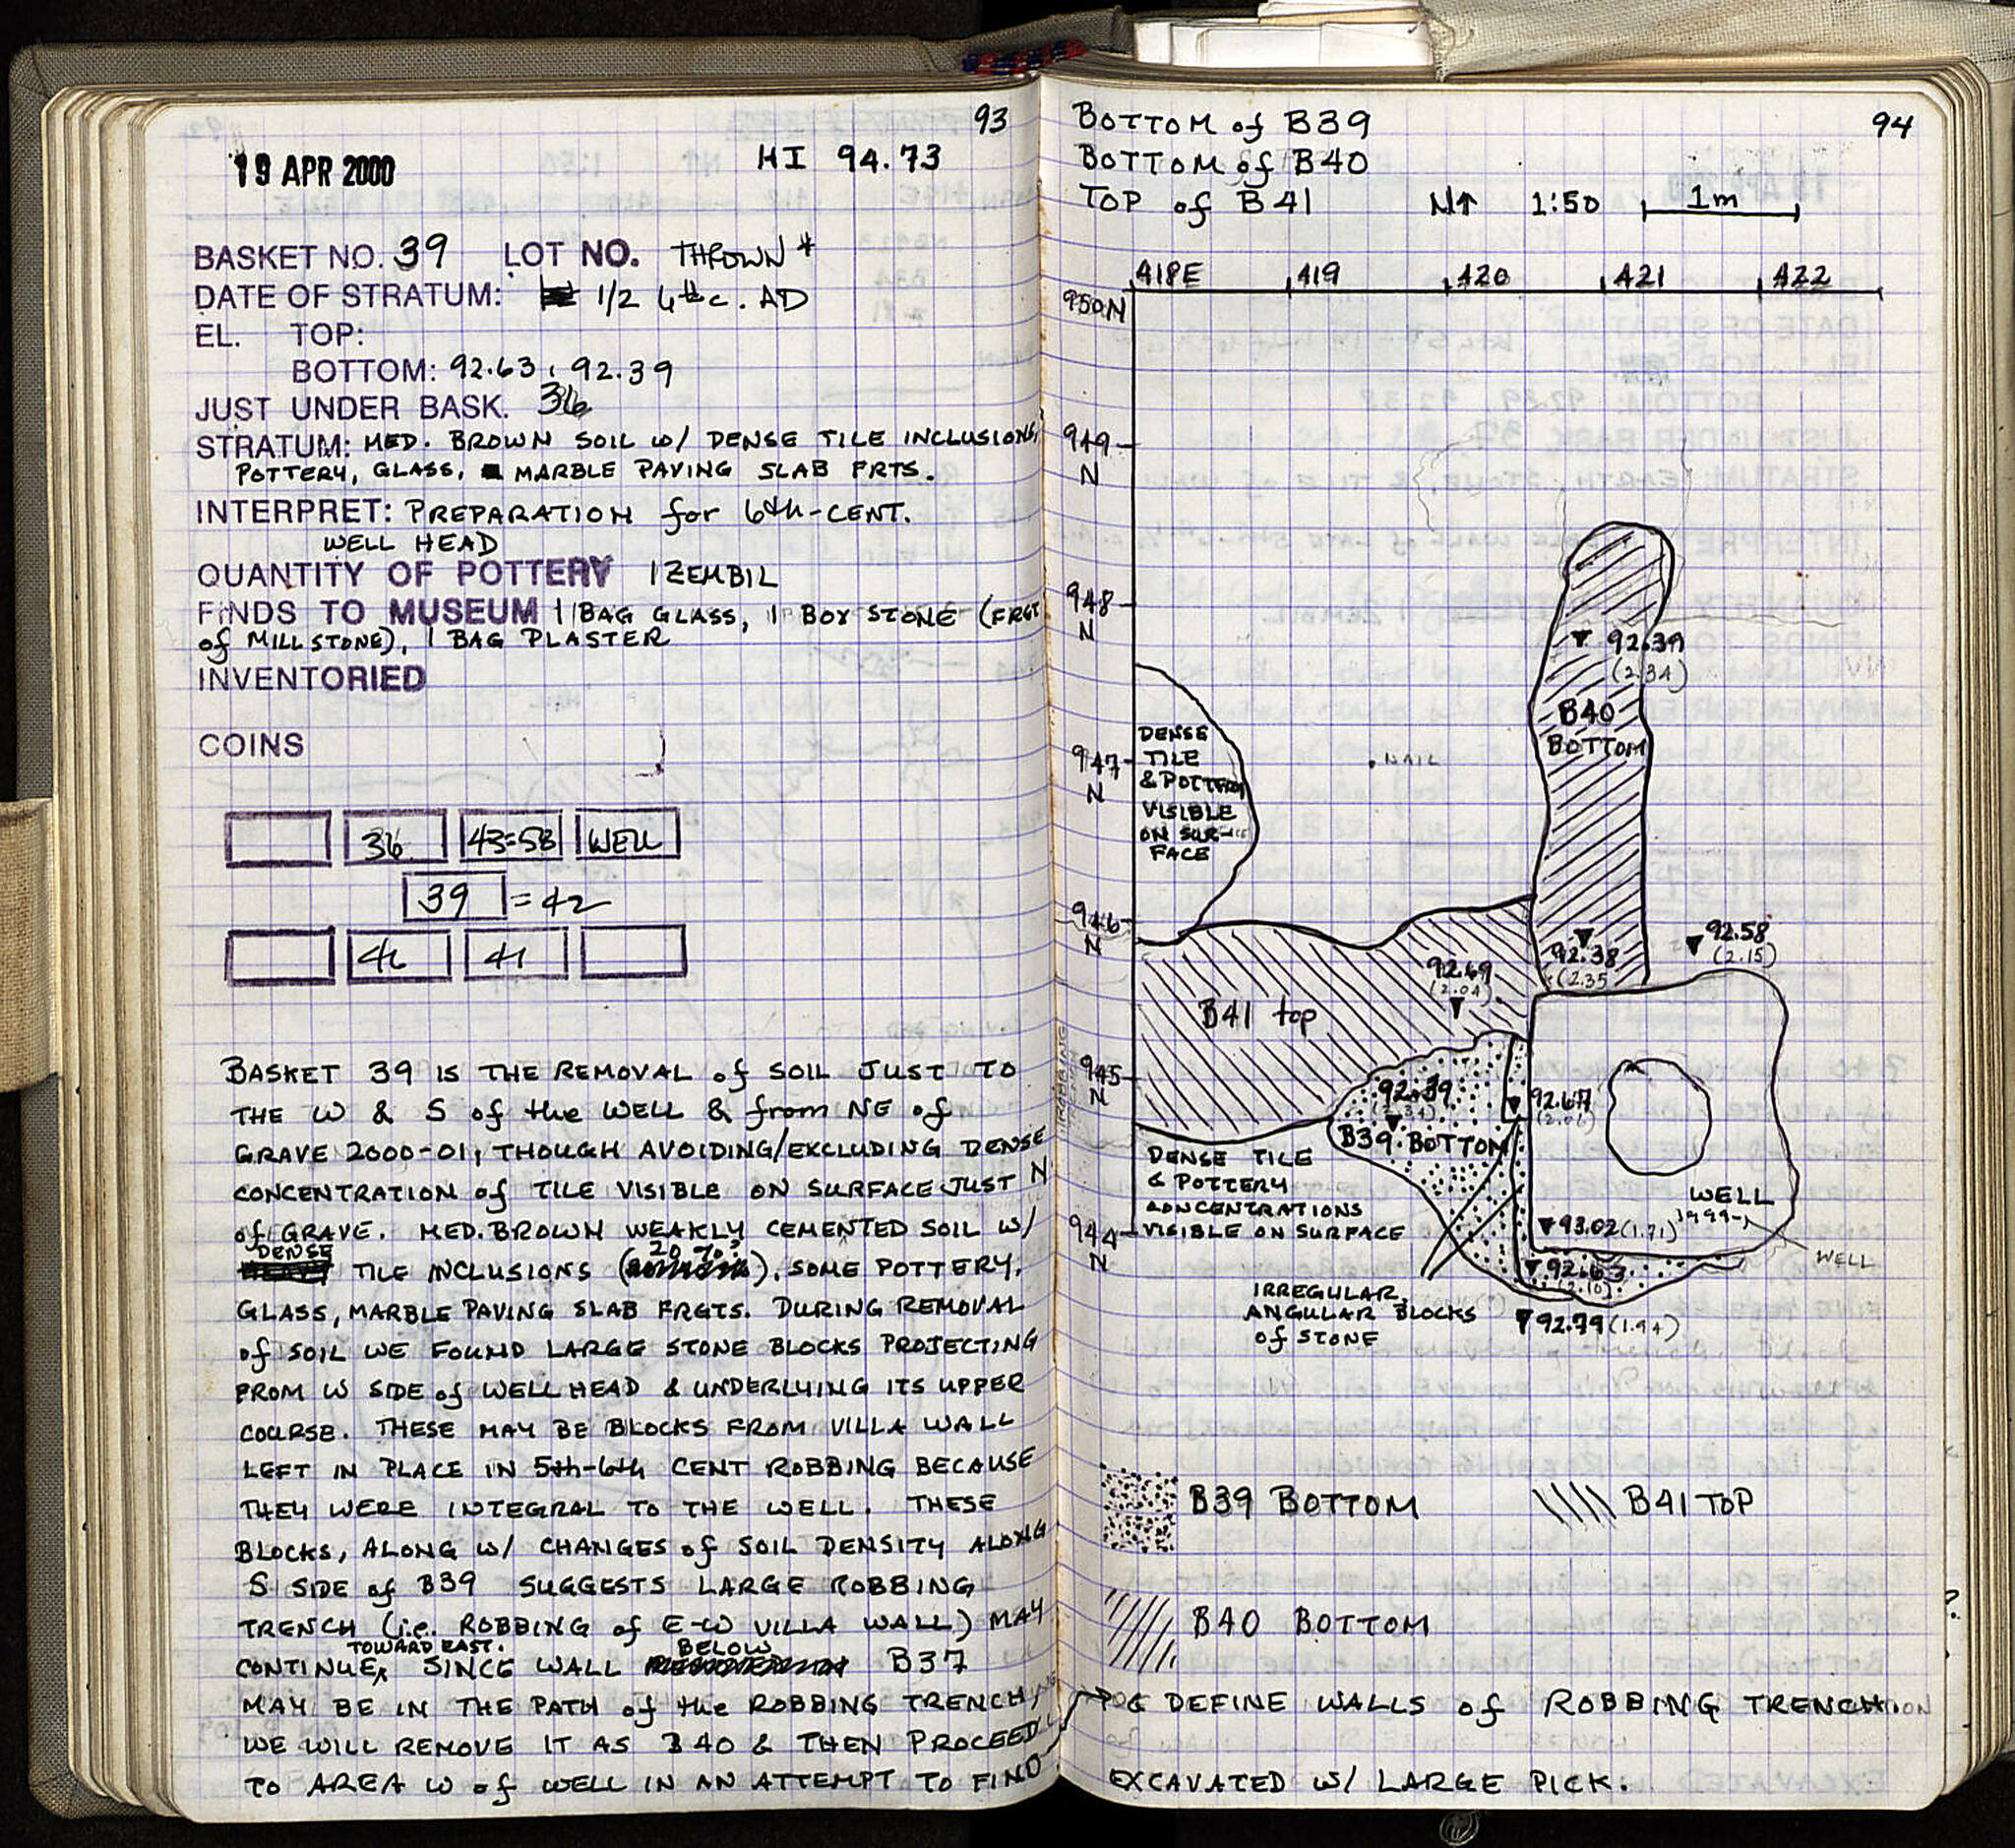 93
19 APR 2000
HI 94.73
BASKET NO. 39 LOT NO. THROWN *
DATE OF STRATUM: 1/2 6th c. AD
EL. TOP:
BOTTOM: 92.63, 92.39
JUST UNDER BASK. 36
STRATUM: MED. BROWN SOIL W/ DENSE TILE INCLUSIONS,
POTTERY, GLASS, MARBLE PAVING SLAB FRTS.
INTERPRET: PREPARATION for 6th-CENT.
WELL HEAD
QUANTITY OF POTTERY 1 ZEMBIL
FINDS TO MUSEUM 1 BAG GLASS, 1 BOX STONE (FRGT
of MILLSTONE), 1 BAG PLASTER
INVENTORIED
COINS
36 43=58 WELL
39 = 42
41
BASKET 39 IS THE REMOVAL of SOIL JUST TO
THE W & S of the WELL & from NE of
GRAVE 2000-01, THOUGH AVOIDING/EXCLUDING DENSE
CONCENTRATION of TILE VISIBLE ON SURFACE JUST N
of GRAVE. MED. BROWN WEAKLY CEMENTED SOIL W/
DENSE TILE INCLUSIONS (20%?), SOME POTTERY,
GLASS, MARBLE PAVING SLAB FRGTS. DURING REMOVAL
of SOIL WE FOUND LARGE STONE BLOCKS PROJECTING
FROM W SIDE of WELL HEAD & UNDERLYING ITS UPPER
COURSE. THESE MAY BE BLOCKS FROM VILLA WALL
LEFT IN PLACE IN 5th-6th CENT ROBBING BECAUSE
THEY WERE INTEGRAL TO THE WELL. THESE
BLOCKS, ALONG W/ CHANGES of SOIL DENSITY ALONG
S SIDE of B39 SUGGESTS LARGE ROBBING
TRENCH (i.e. ROBBING of E-W VILLA WALL) MAY
CONTINUE TOWARD EAST. SINCE WALL BELOW B37
MAY BE IN THE PATH of the ROBBING TRENCH,
WE WILL REMOVE IT AS B40 & THEN PROCEED
TO AREA W of WELL IN AN ATTEMPT TO FIND
94
BOTTOM of B39
BOTTOM of B40
TOP of B41 N↑ 1:50 1m
418E 419 420 421 422
950N
949
N
948
N
92.39
(2.34)
B40
BOTTOM
DENSE
TILE
& POTTERY
VISIBLE
ON SUR-
FACE
947
N
. NAIL
946
N
92.38
(2.35
92.58
(2.15)
92.69
(2.04)
B41 top
945
N
92.39
(2.34)
92.67
(2.06)
B39 BOTTOM
DENSE TILE
& POTTERY
CONCENTRATIONS
VISIBLE ON SURFACE
944
N
WELL
1999-1
93.02 (1.71)
WELL
92.63
(2.10)
92.79 (1.94)
IRREGULAR,
ANGULAR BLOCKS
of STONE
B39 BOTTOM
B41 TOP
B40 BOTTOM
& DEFINE WALLS of ROBBING TRENCH.
EXCAVATED W/ LARGE PICK.